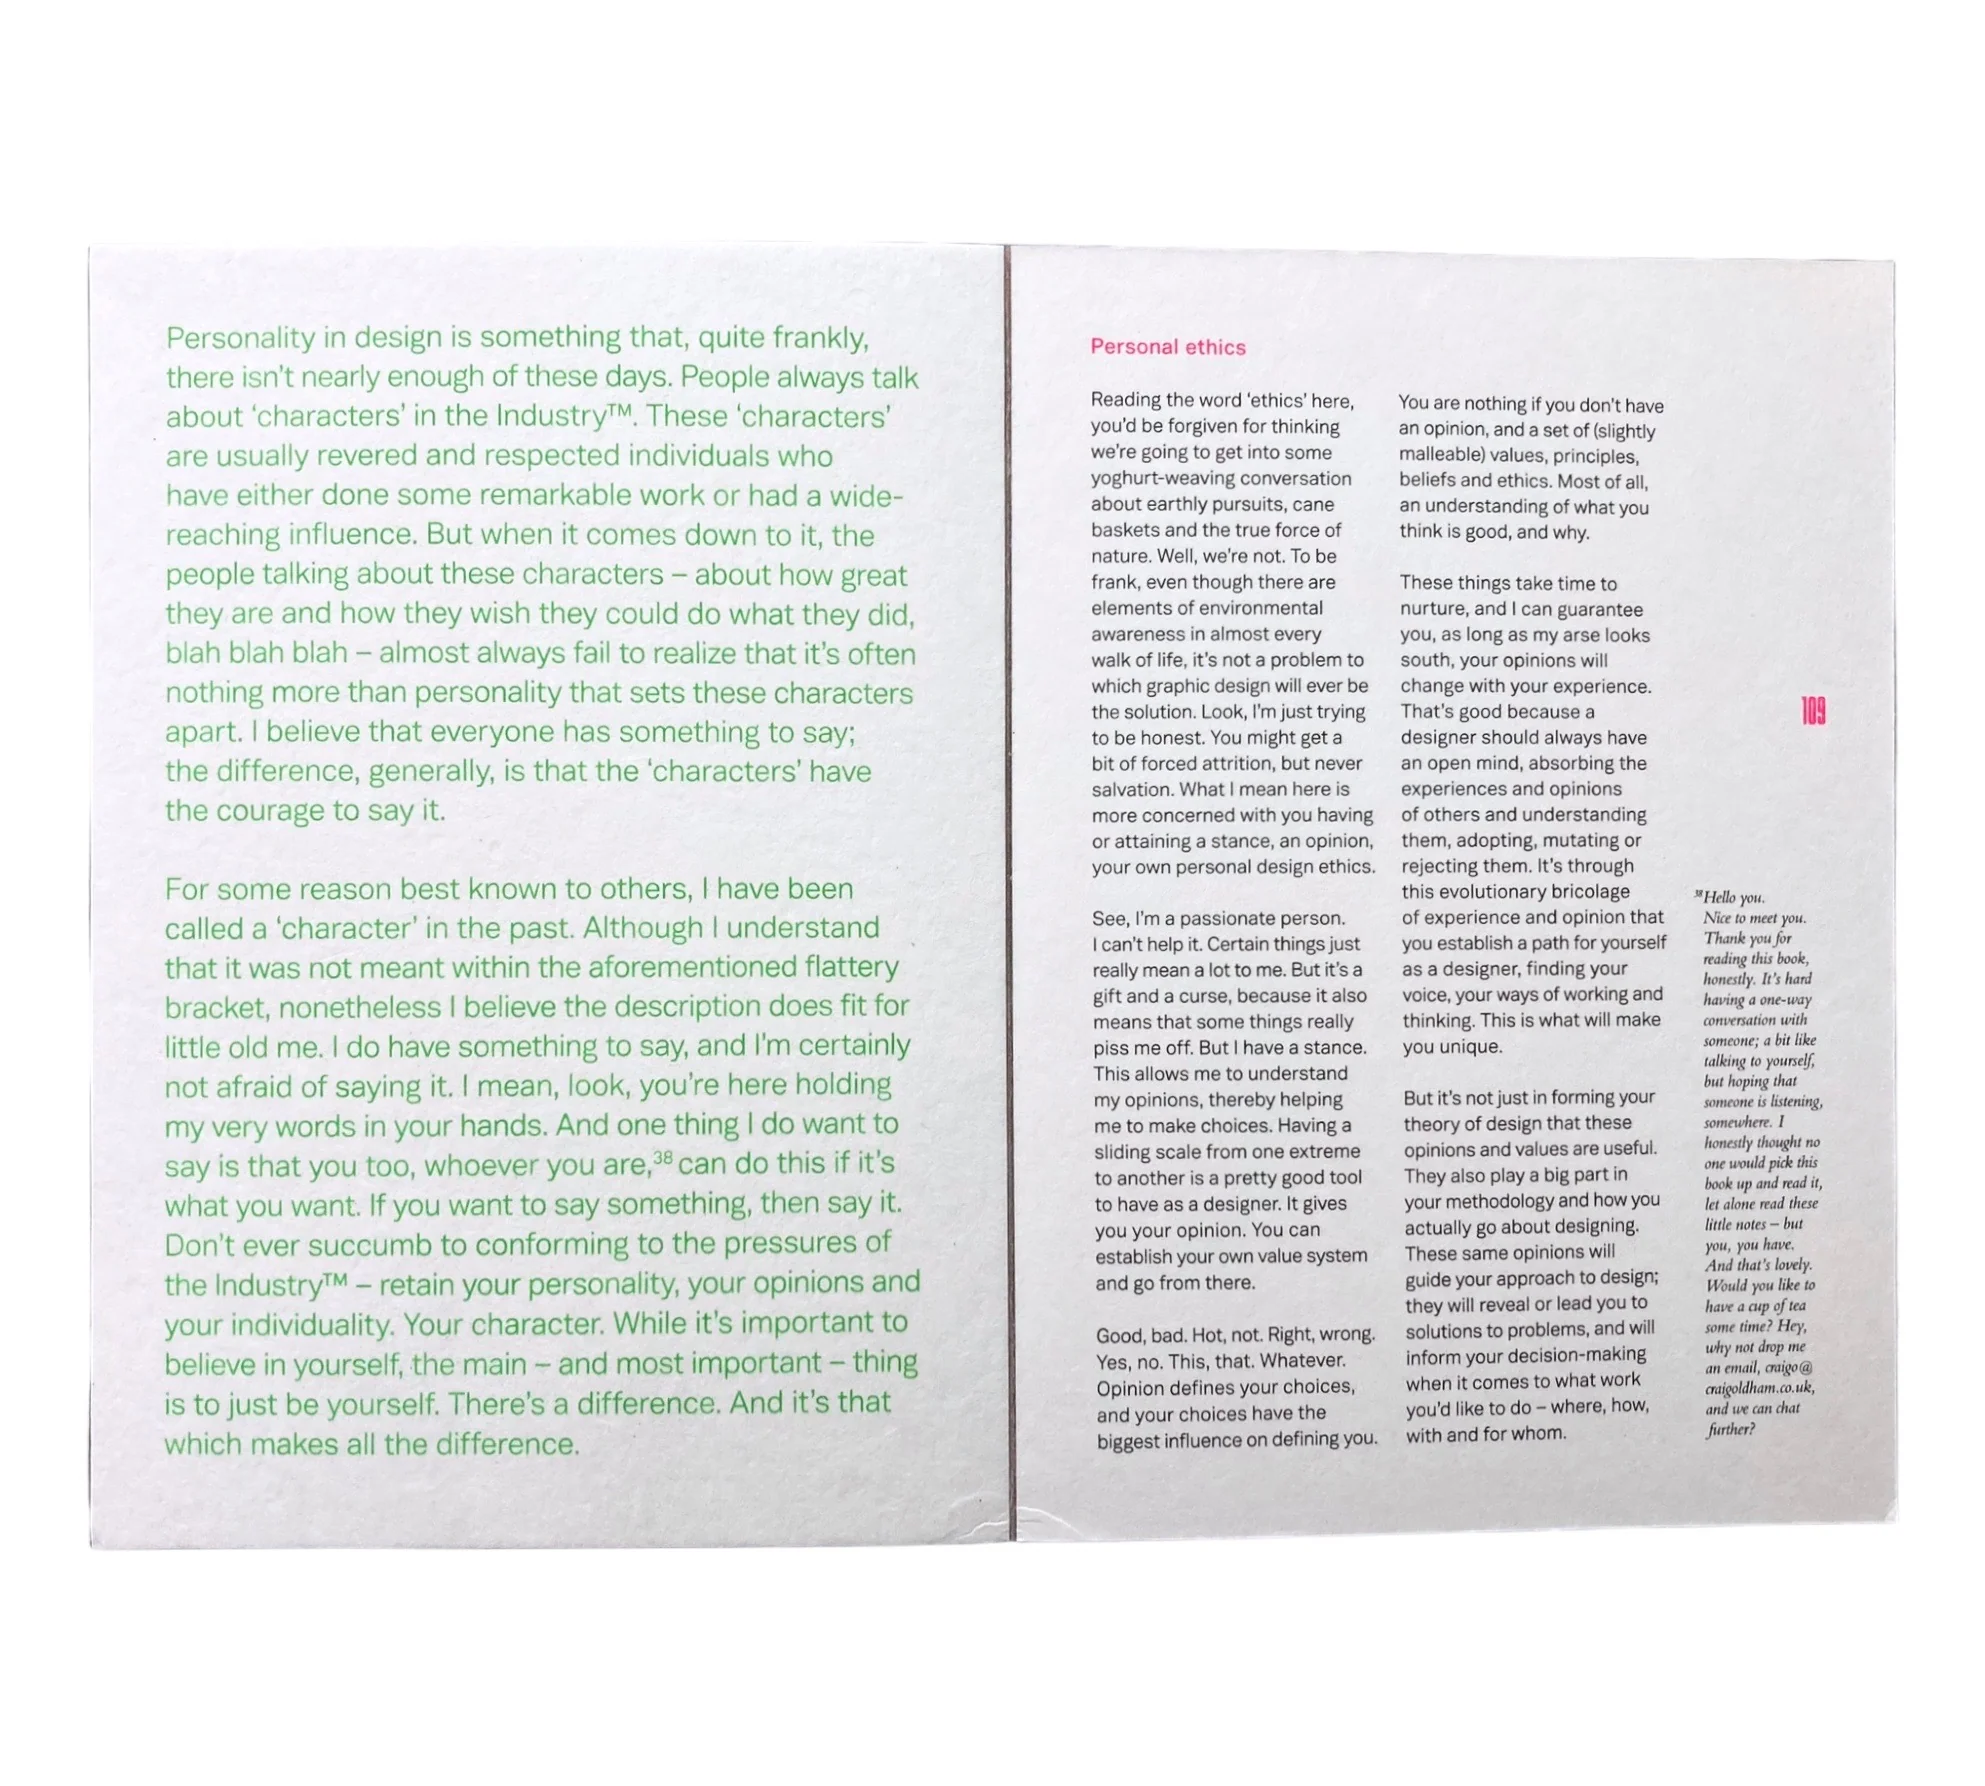 Personality in design is something that, quite frankly,
there isn't nearly enough of these days. People always talk
about ‘characters’ in the Industry™. These ‘characters’
are usually revered and respected individuals who
have either done some remarkable work or had a wide-
reaching influence. But when it comes down to it, the
people talking about these characters – about how great
they are and how they wish they could do what they did,
blah blah blah – almost always fail to realize that it's often
nothing more than personality that sets these characters
apart. I believe that everyone has something to say;
the difference, generally, is that the ‘characters’ have
the courage to say it.
For some reason best known to others, I have been
called a ‘character’ in the past. Although I understand
that it was not meant within the aforementioned flattery
bracket, nonetheless I believe the description does fit for
little old me. I do have something to say, and I'm certainly
not afraid of saying it. I mean, look, you're here holding
my very words in your hands. And one thing I do want to
say is that you too, whoever you are,³⁸ can do this if it's
what you want. If you want to say something, then say it.
Don't ever succumb to conforming to the pressures of
the Industry™ – retain your personality, your opinions and
your individuality. Your character. While it's important to
believe in yourself, the main – and most important – thing
is to just be yourself. There's a difference. And it's that
which makes all the difference.
Personal ethics
Reading the word ‘ethics’ here,
you'd be forgiven for thinking
we're going to get into some
yoghurt-weaving conversation
about earthly pursuits, cane
baskets and the true force of
nature. Well, we're not. To be
frank, even though there are
elements of environmental
awareness in almost every
walk of life, it's not a problem to
which graphic design will ever be
the solution. Look, I'm just trying
to be honest. You might get a
bit of forced attrition, but never
salvation. What I mean here is
more concerned with you having
or attaining a stance, an opinion,
your own personal design ethics.
See, I'm a passionate person.
I can't help it. Certain things just
really mean a lot to me. But it's a
gift and a curse, because it also
means that some things really
piss me off. But I have a stance.
This allows me to understand
my opinions, thereby helping
me to make choices. Having a
sliding scale from one extreme
to another is a pretty good tool
to have as a designer. It gives
you your opinion. You can
establish your own value system
and go from there.
Good, bad. Hot, not. Right, wrong.
Yes, no. This, that. Whatever.
Opinion defines your choices,
and your choices have the
biggest influence on defining you.
You are nothing if you don't have
an opinion, and a set of (slightly
malleable) values, principles,
beliefs and ethics. Most of all,
an understanding of what you
think is good, and why.
These things take time to
nurture, and I can guarantee
you, as long as my arse looks
south, your opinions will
change with your experience.
That's good because a
designer should always have
an open mind, absorbing the
experiences and opinions
of others and understanding
them, adopting, mutating or
rejecting them. It's through
this evolutionary bricolage
of experience and opinion that
you establish a path for yourself
as a designer, finding your
voice, your ways of working and
thinking. This is what will make
you unique.
But it's not just in forming your
theory of design that these
opinions and values are useful.
They also play a big part in
your methodology and how you
actually go about designing.
These same opinions will
guide your approach to design;
they will reveal or lead you to
solutions to problems, and will
inform your decision-making
when it comes to what work
you'd like to do – where, how,
with and for whom.
109
³⁸ Hello you.
Nice to meet you.
Thank you for
reading this book,
honestly. It's hard
having a one-way
conversation with
someone; a bit like
talking to yourself,
but hoping that
someone is listening,
somewhere. I
honestly thought no
one would pick this
book up and read it,
let alone read these
little notes – but
you, you have.
And that's lovely.
Would you like to
have a cup of tea
some time? Hey,
why not drop me
an email, craigo@
craigoldham.co.uk,
and we can chat
further?